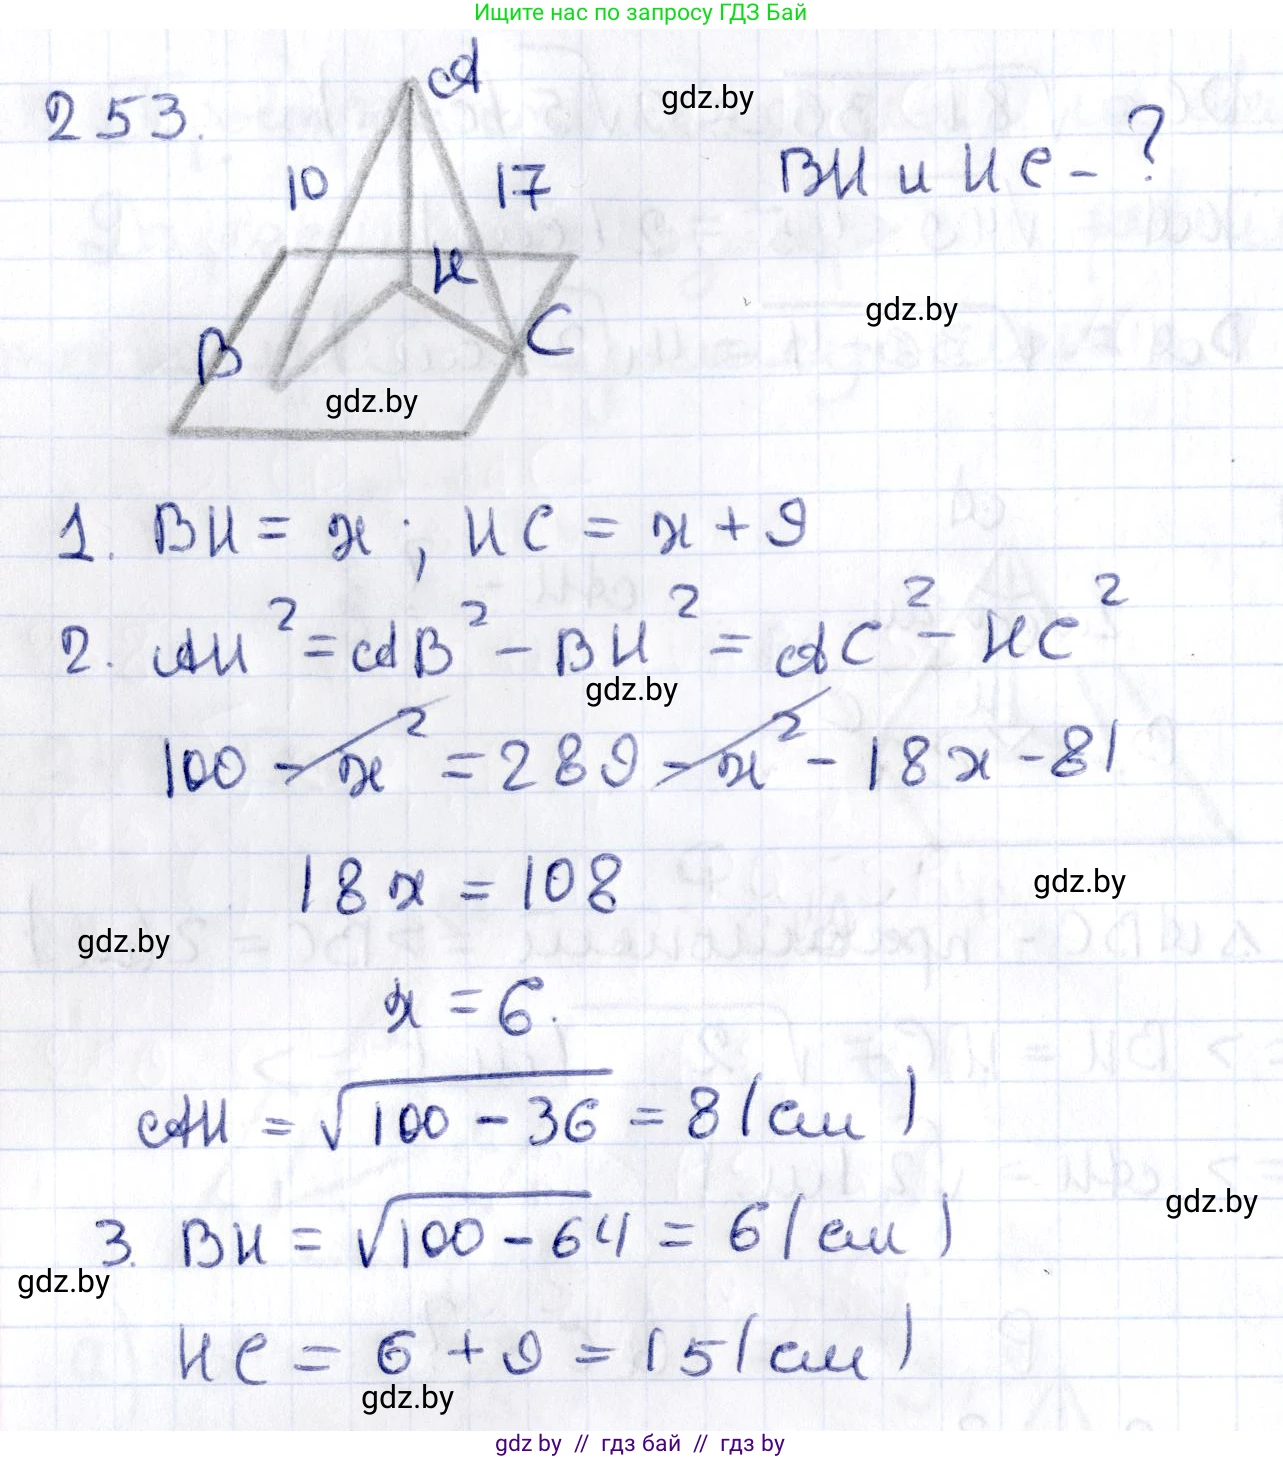 Ищите нас по запросу ГДЗ Бай
253.
A
10
17
H
B
C
BH и HC - ?
gdz.by
gdz.by
gdz.by
1. BH = x ; HC = x + 9
2. AH² = AB² - BH² = AC² - HC²
gdz.by
100 - x² = 289 - x² - 18x - 81
18x = 108
gdz.by
gdz.by
x = 6.
AH = √100 - 36 = 8 (см)
gdz.by
3. BH = √100 - 64 = 6 (см)
gdz.by
HC = 6 + 9 = 15 (см)
gdz.by
gdz by // гдз бай // гдз by